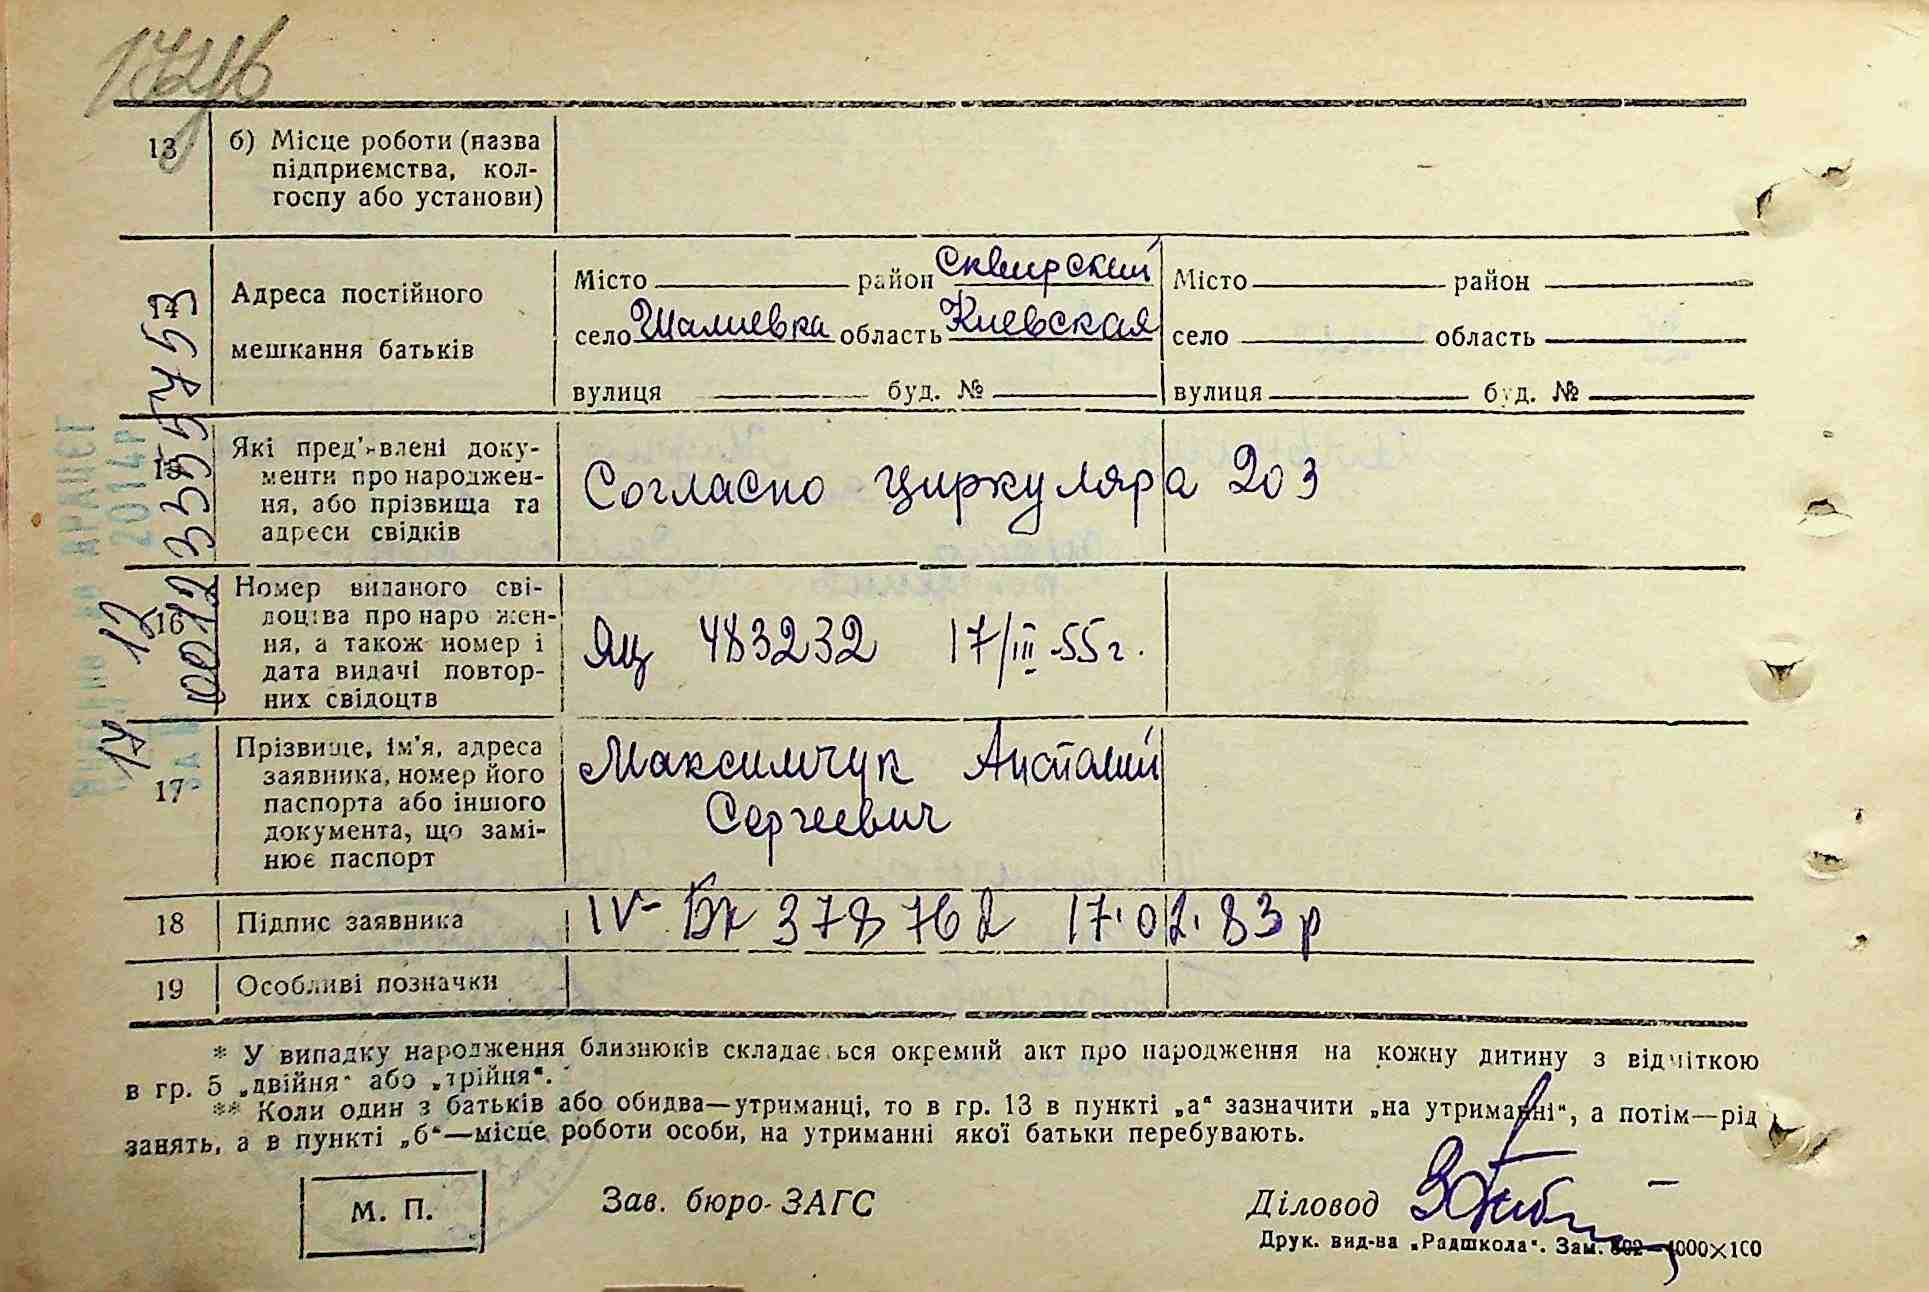 13 б) Місце роботи (назва
підприємства, кол-
госпу або установи)
14 Адреса постійного
мешкання батьків
Місто район Сквирский
село Шалиевка область Киевская
вулиця буд. №
Місто район
село область
вулиця буд. №
15 Які пред'явлені доку-
менти про народжен-
ня, або прізвища та
адреси свідків
Согласно циркуляра 203
16 Номер виданого сві-
доцтва про народжен-
ня, а також номер і
дата видачі повтор-
них свідоцтв
ЯЦ 483232 17/III-55г.
17 Прізвище, ім'я, адреса
заявника, номер його
паспорта або іншого
документа, що замі-
нює паспорт
Максимчук Анатолий
Сергеевич
18 Підпис заявника
IV-БК 378762 17.02.83р
19 Особливі позначки
* У випадку народження близнюків складається окремий акт про народження на кожну дитину з відміткою
в гр. 5 „двійня" або „трійня".
** Коли один з батьків або обидва—утриманці, то в гр. 13 в пункті „а" зазначити „на утриманні", а потім—рід
занять, а в пункті „б"—місце роботи особи, на утриманні якої батьки перебувають.
М. П.
Зав. бюро ЗАГС
Діловод
Друк. вид-ва „Радшкола". Зам. 802—4000×100